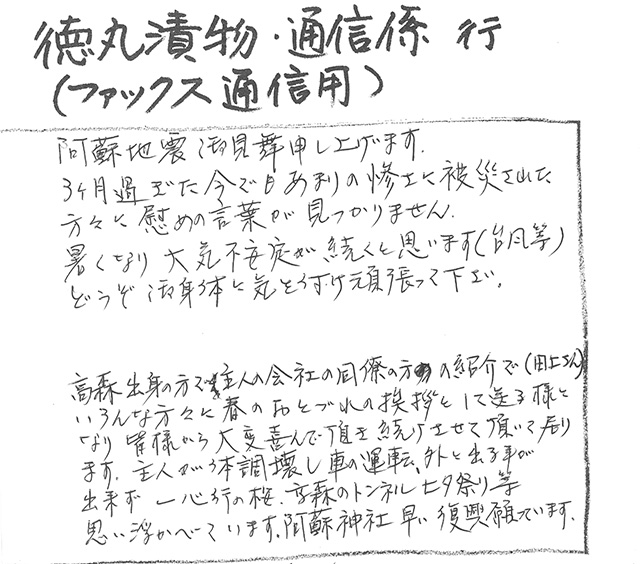 徳丸漬物・通信係 行
(ファックス通信用)
阿蘇地震御見舞申し上げます.
3ヶ月過ぎた今でもあまりの惨士に被災された
方々に慰めの言葉が見つかりません.
暑くなり大気不安定が続くと思います(台風等)
どうぞ御身体に気を付け頑張って下さい.
高森出身の方で主人の会社の同僚の方の紹介で(田上さん)
いろんな方々に春のおとづれの挨拶として送る様に
なり皆様から大変喜んで頂き続けさせて頂いて居り
ます.主人が体調壊し車の運転、外に出る事が
出来ず一心行の桜、高森のトンネル七夕祭り等
思い浮かべています.阿蘇神社早い復興願っています.